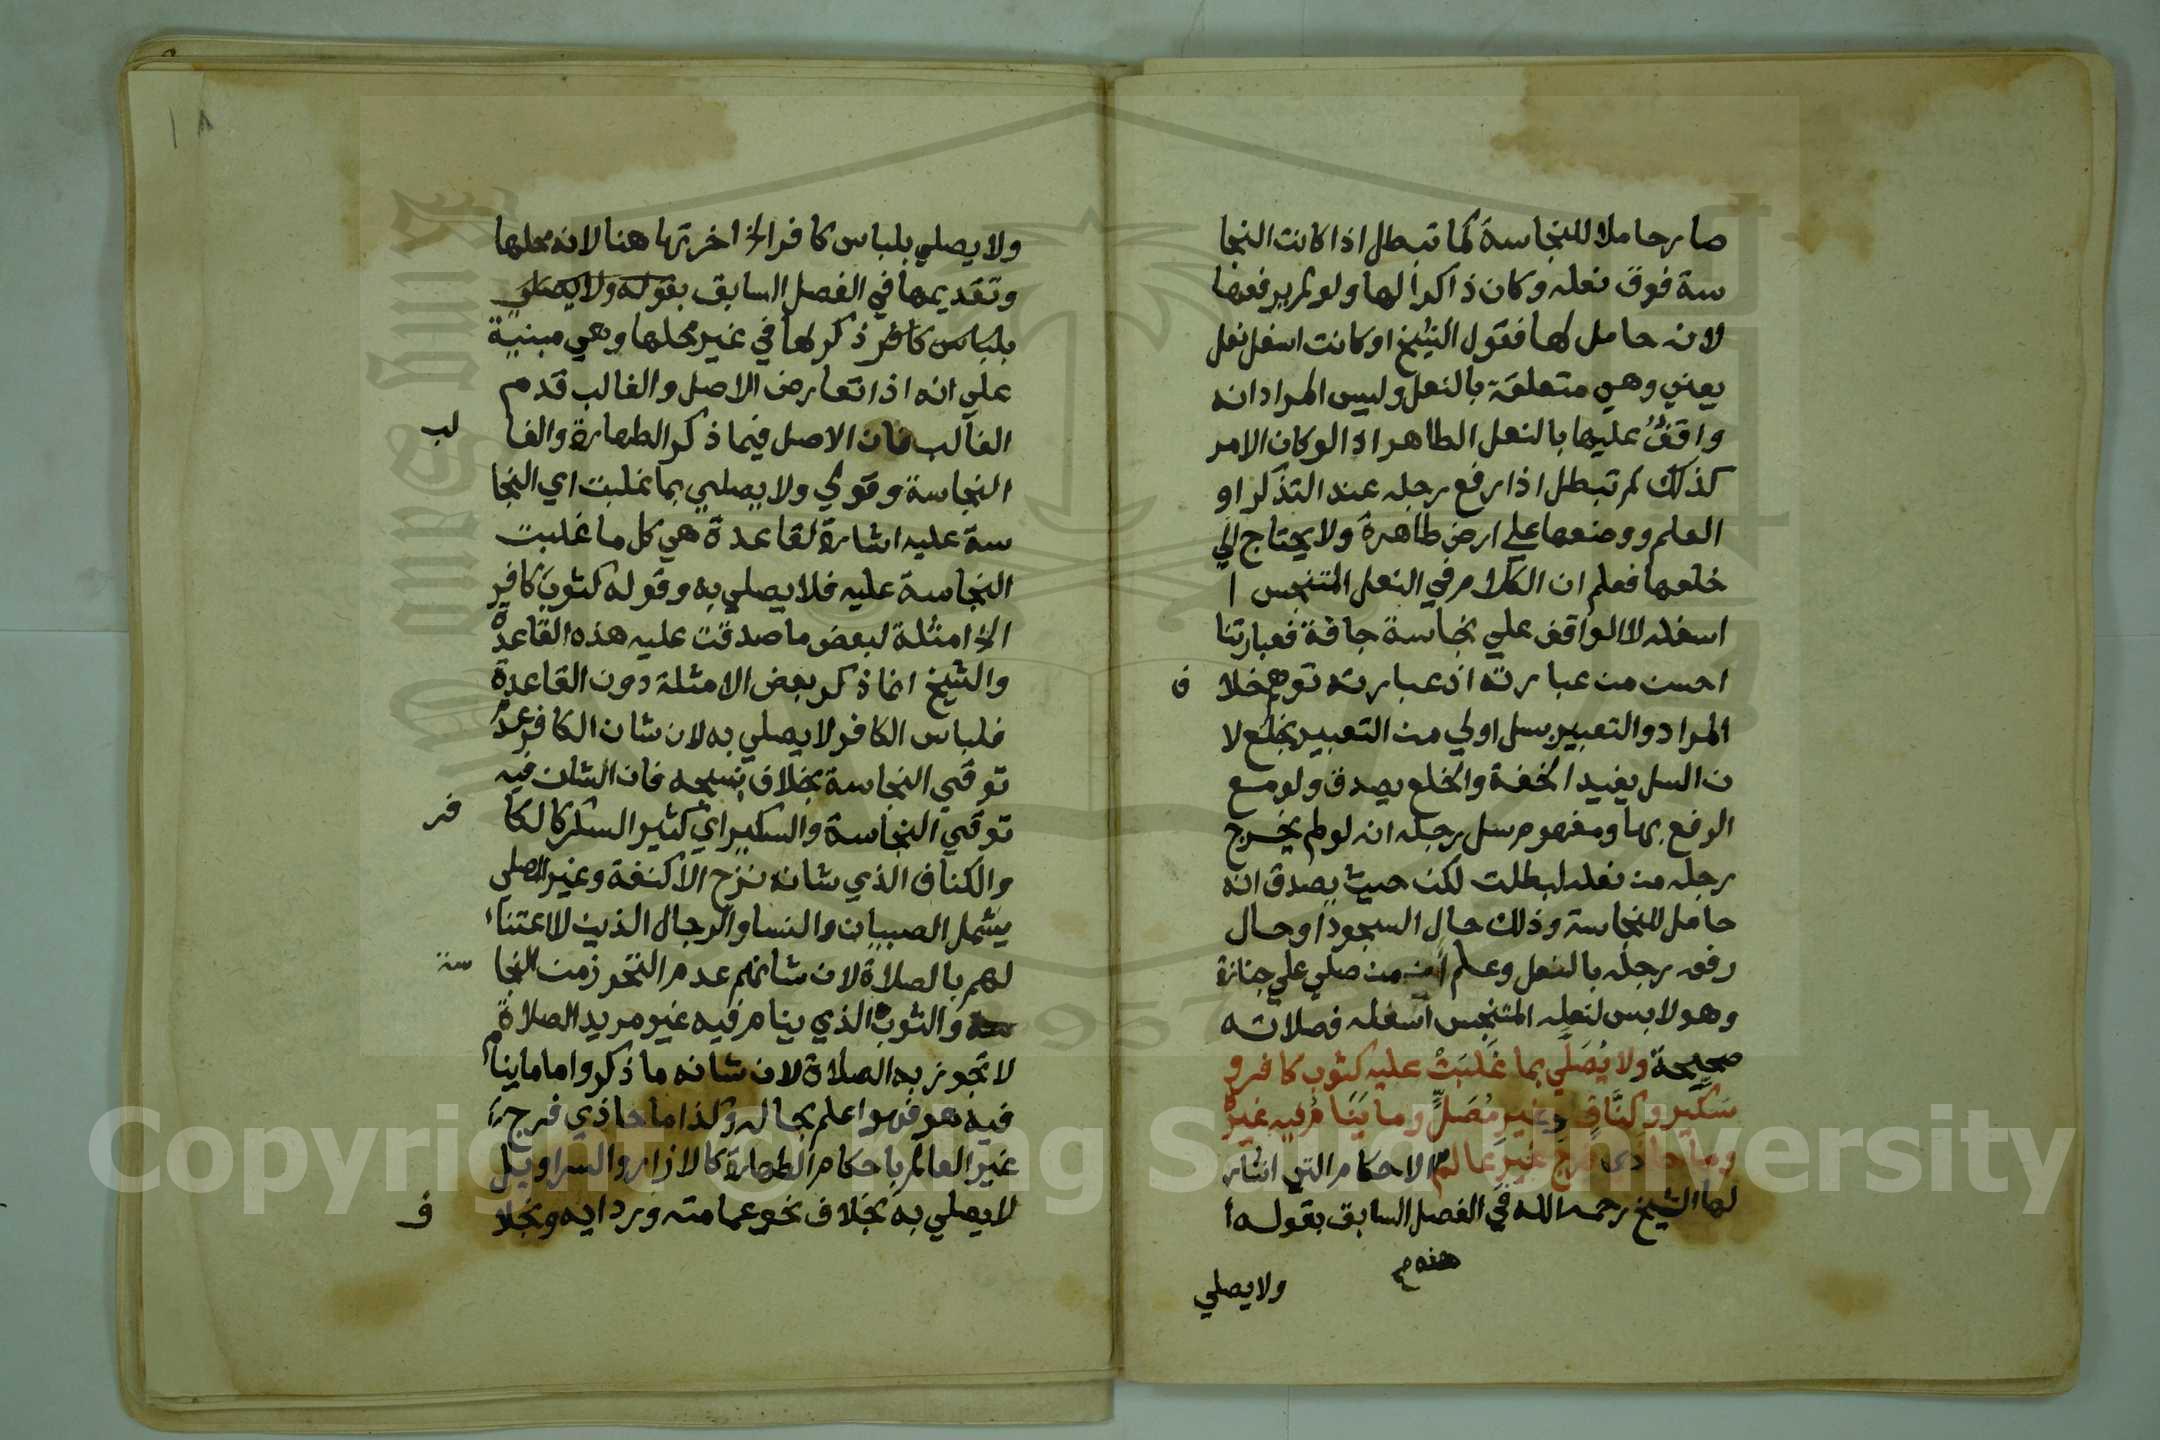 صار حاملا للنجاسة كما تبطل اذا كانت النجا
سة فوق نعله وكان ذاكرا لها ولو لم يرفعها
لانه حامل لها فقول الشيخ او كانت اسفل نعل
يعني وهي متعلقة بالنعل وليس المراد انه
واقف عليها بالنعل الطاهر اذ لو كان الامر
كذلك لم تبطل اذا رفع رجله عند التذكر او
العلم ووضعها علي ارض طاهرة ولا يحتاج الي
خلعها فعلم ان الكلام في النعل المتنجس ا
اسفله لا الواقف علي نجاسة جافة فعبارتنا
احسن من عبارته اذ عبارته توهم خلا ف
المراد والتعبير بسل اولي من التعبير بخلع لا
ن السل يفيد الخفة والخلع يصدق ولو مع
الرفع بها ومفهوم سل رجله انه لو لم يخرج
رجله من نعله لبطلت لكن حيث يصدق انه
حامل للنجاسة وذلك حال السجود او حال
رفع رجله بالنعل وعلم من صلي علي جنازة
وهو لابس لنعله المتنجس اسفله فصلاته
صحيحة ولا يُصَلّي بما غَلَبَتْ عليه كثوب كافر و
سكّير وكنّاف وغير مُصَلٍّ وما يَنَامُ فيه غيرُه
وما حاذي فرجَ غيرِ عالمٍ الاحكام التي اشار
لها الشيخ رحمه الله في الفصل السابق بقوله ا
هذه م
ولا يصلي
١٨
ولا يصلي بلباس كافر الخ اخرتها هنا لانه محلها
وتقديمها في الفصل السابق بقوله ولا يصلي
بلباس كافر ذكر لها في غير محلها وهي مبنية
علي انه اذا تعارض الاصل والغالب قدم
الغالب فان الاصل فيما ذكر الطهارة والغا لب
النجاسة وقولي ولا يصلي بما غلبت اي النجا
سة عليه اشارة لقاعدة هي كل ما غلبت
النجاسة عليه فلا يصلي به وقوله كثوب كافر
الخ امثلة لبعض ما صدقت عليه هذه القاعدة
والشيخ انما ذكر بعض الامثلة دون القاعدة
فلباس الكافر لا يصلي به لان شان الكافر عدم
توقي النجاسة بخلاف نسيجه فان الشان فيه
توقي النجاسة والسكير اي كثير السكر كالكا فر
والكناف الذي شانه نزح الاكنفة وغير المصلي
يشمل الصبيان والنسا والرجال الذين لا اعتنا
لهم بالصلاة لان شانهم عدم التحرز من النجا سة
والثوب الذي ينام فيه غير مريد الصلاة
لا تجوز به الصلاة لان شانه ما ذكر واما ما ينام
فيه هو فهو اعلم بحاله وكذا ما حاذي فرج
غير العالم باحكام الطهارة كالازار والسراويل
لا يصلي به بخلاف نحو عمامته وردايه وبخلا ف
Copyright © King Saud University
1957